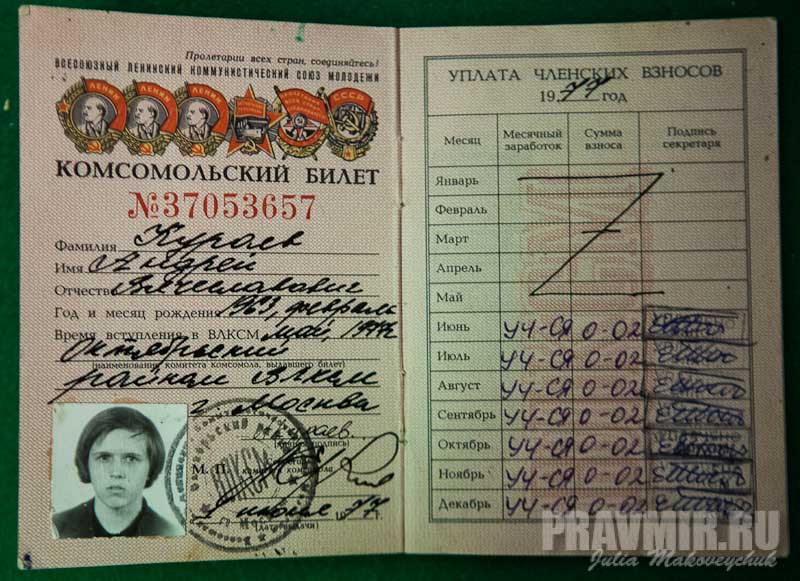 Пролетарии всех стран, соединяйтесь!
ВСЕСОЮЗНЫЙ ЛЕНИНСКИЙ КОММУНИСТИЧЕСКИЙ СОЮЗ МОЛОДЕЖИ
ЛЕНИН ЛЕНИН ЛЕНИН СССР
КОМСОМОЛЬСКИЙ БИЛЕТ
№37053657
Фамилия Кураев
Имя Андрей
Отчество Вячеславович
Год и месяц рождения 1963, февраль
Время вступления в ВЛКСМ май, 1977г
Октябрьский
(наименование комитета комсомола, выдавшего билет)
райком ВЛКСМ
г. Москва
(личная подпись)
М. П.
комитета комсомола
июнь 1977 г.
(дата выдачи)
ВЛКСМ
УПЛАТА ЧЛЕНСКИХ ВЗНОСОВ
1977 год
Месяц Месячный заработок Сумма взноса Подпись секретаря
Январь
Февраль
Март
Апрель
Май
Июнь уч-ся 0-02
Июль уч-ся 0-02
Август уч-ся 0-02
Сентябрь уч-ся 0-02
Октябрь уч-ся 0-02
Ноябрь уч-ся 0-02
Декабрь уч-ся 0-02
PRAVMIR.RU
Julia Makoveychuk